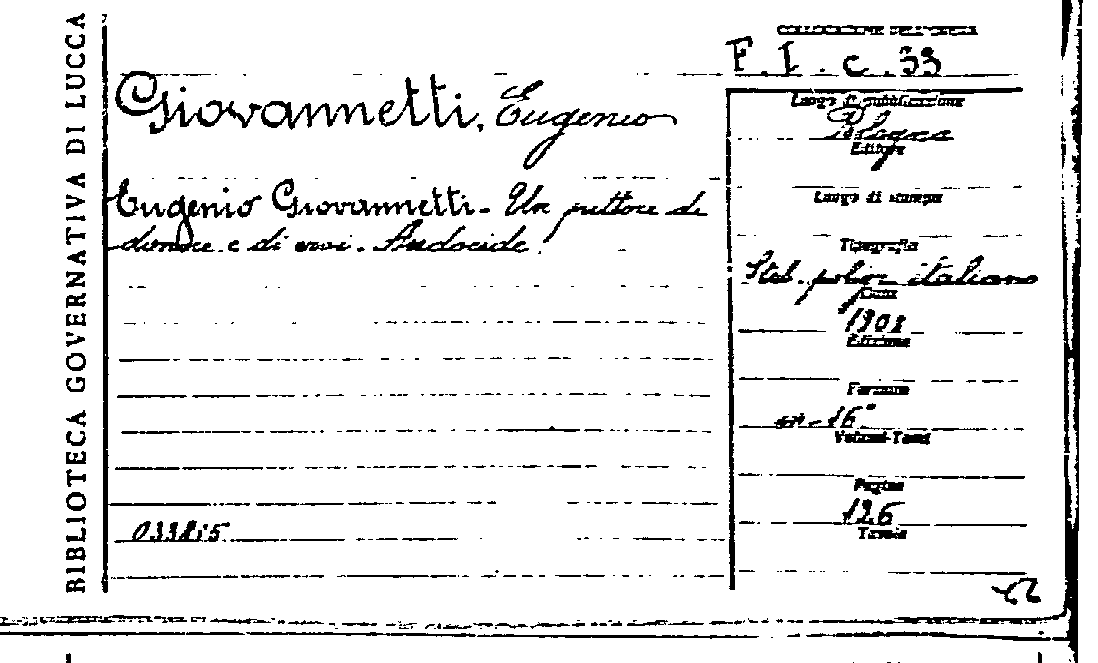 BIBLIOTECA GOVERNATIVA DI LUCCA
COLLOCAZIONE DELL'OPERA
F. I. c. 33
Giovannetti, Eugenio
Eugenio Giovannetti - Un pittore di
donne e di eroi. Andocide.
Luogo di pubblicazione
Bologna
Editore
Luogo di stampa
Tipografia
Stab. poligr. italiano
Data
Edizione
Formato
in-16°
Volumi-Tomi
Pagine
126
Tavole